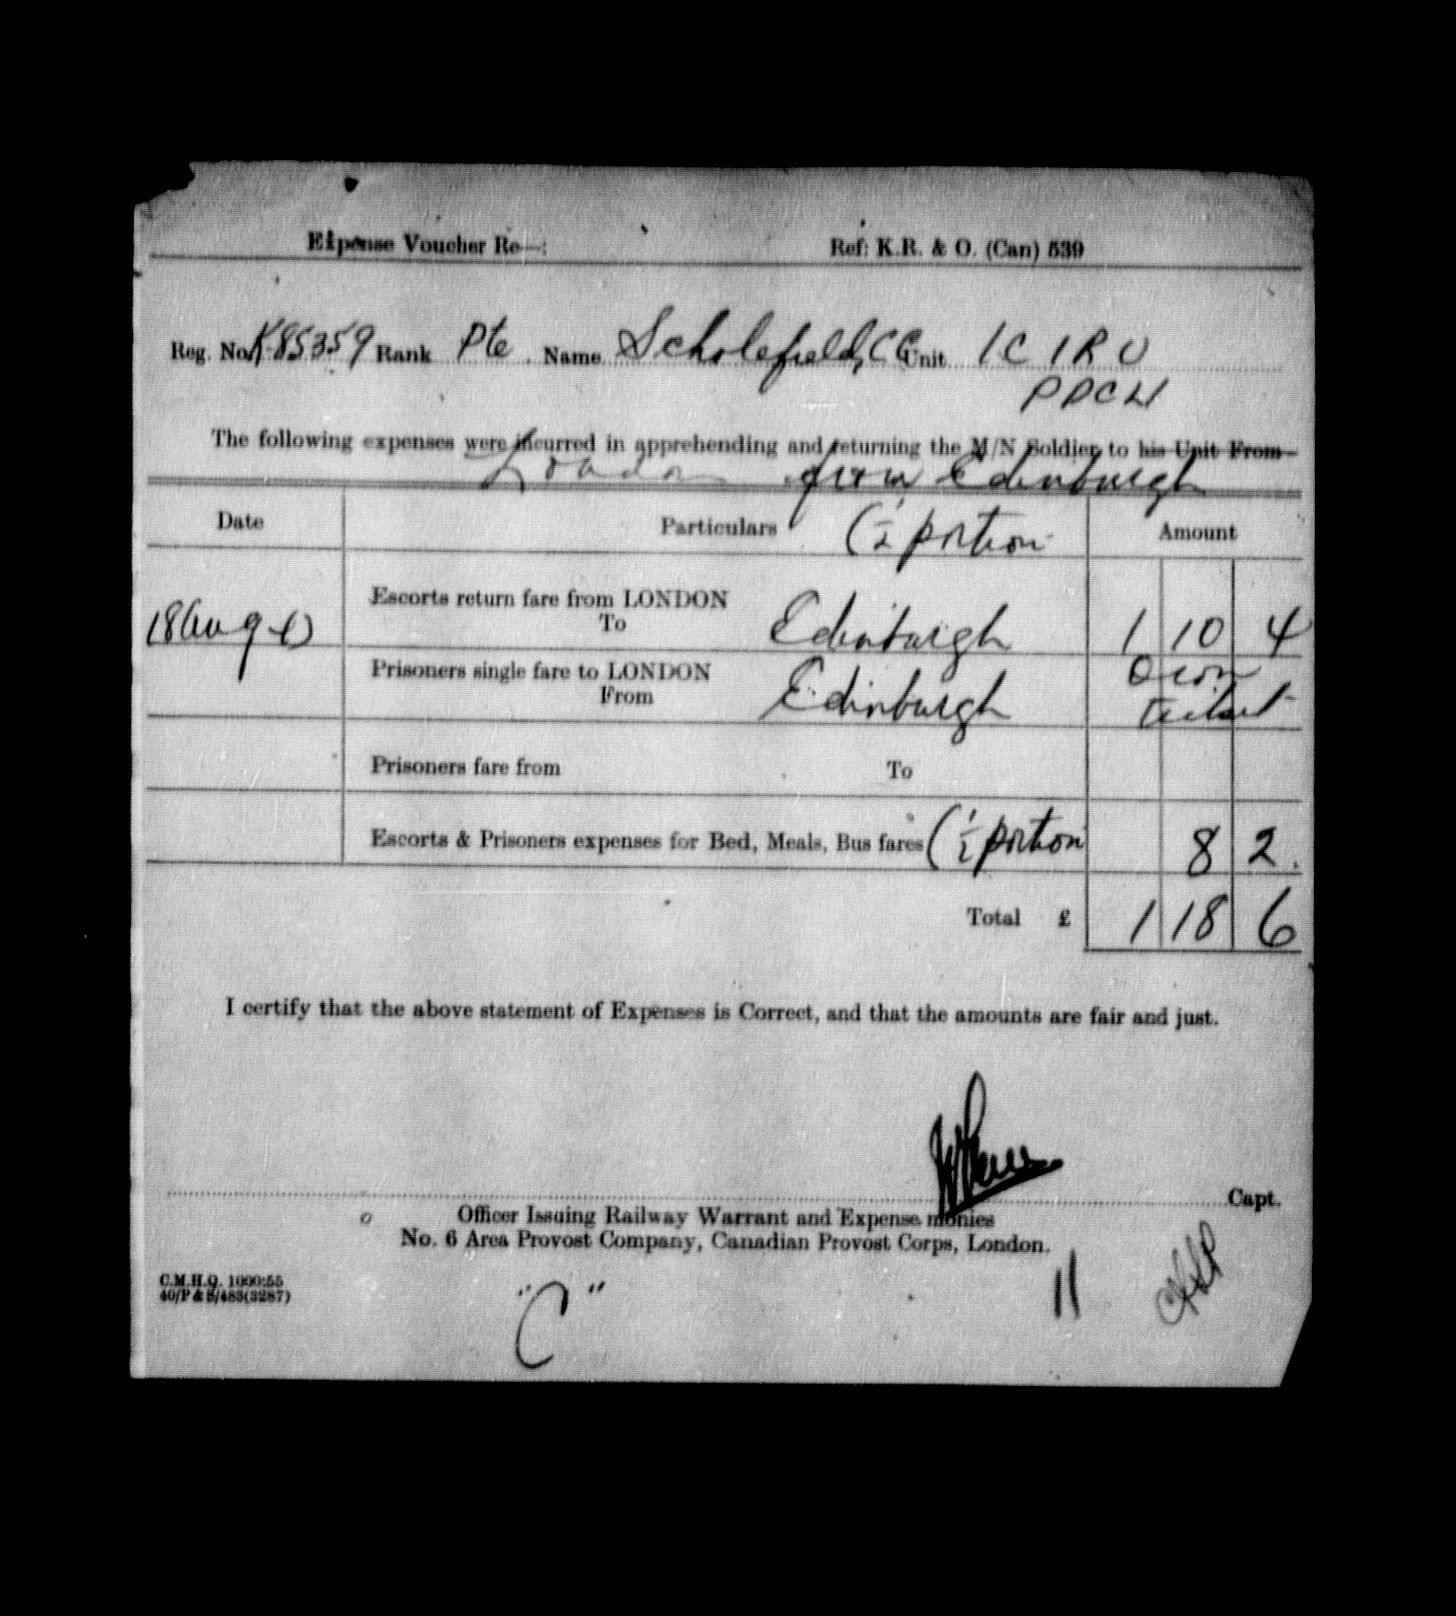 Expense Voucher Re—: Ref: K.R. & O. (Can) 539
Reg. No. K85359 Rank Pte Name Scholefield, CC Unit 1 C I R U
The following expenses were incurred in apprehending and returning the M/N Soldier to his Unit From
London from Edinburgh
Date Particulars (½ portion Amount
Escorts return fare from LONDON
18 Aug To Edinburgh 1 10 4
Prisoners single fare to LONDON Own
From Edinburgh Ticket
Prisoners fare from To
Escorts & Prisoners expenses for Bed, Meals, Bus fares (½ portion 8 2.
Total £ 1 18 6
I certify that the above statement of Expenses is Correct, and that the amounts are fair and just.
Capt.
Officer Issuing Railway Warrant and Expense monies
No. 6 Area Provost Company, Canadian Provost Corps, London.
C.M.H.Q. 1000:55
40/P & S/483(3287)
"C" 11